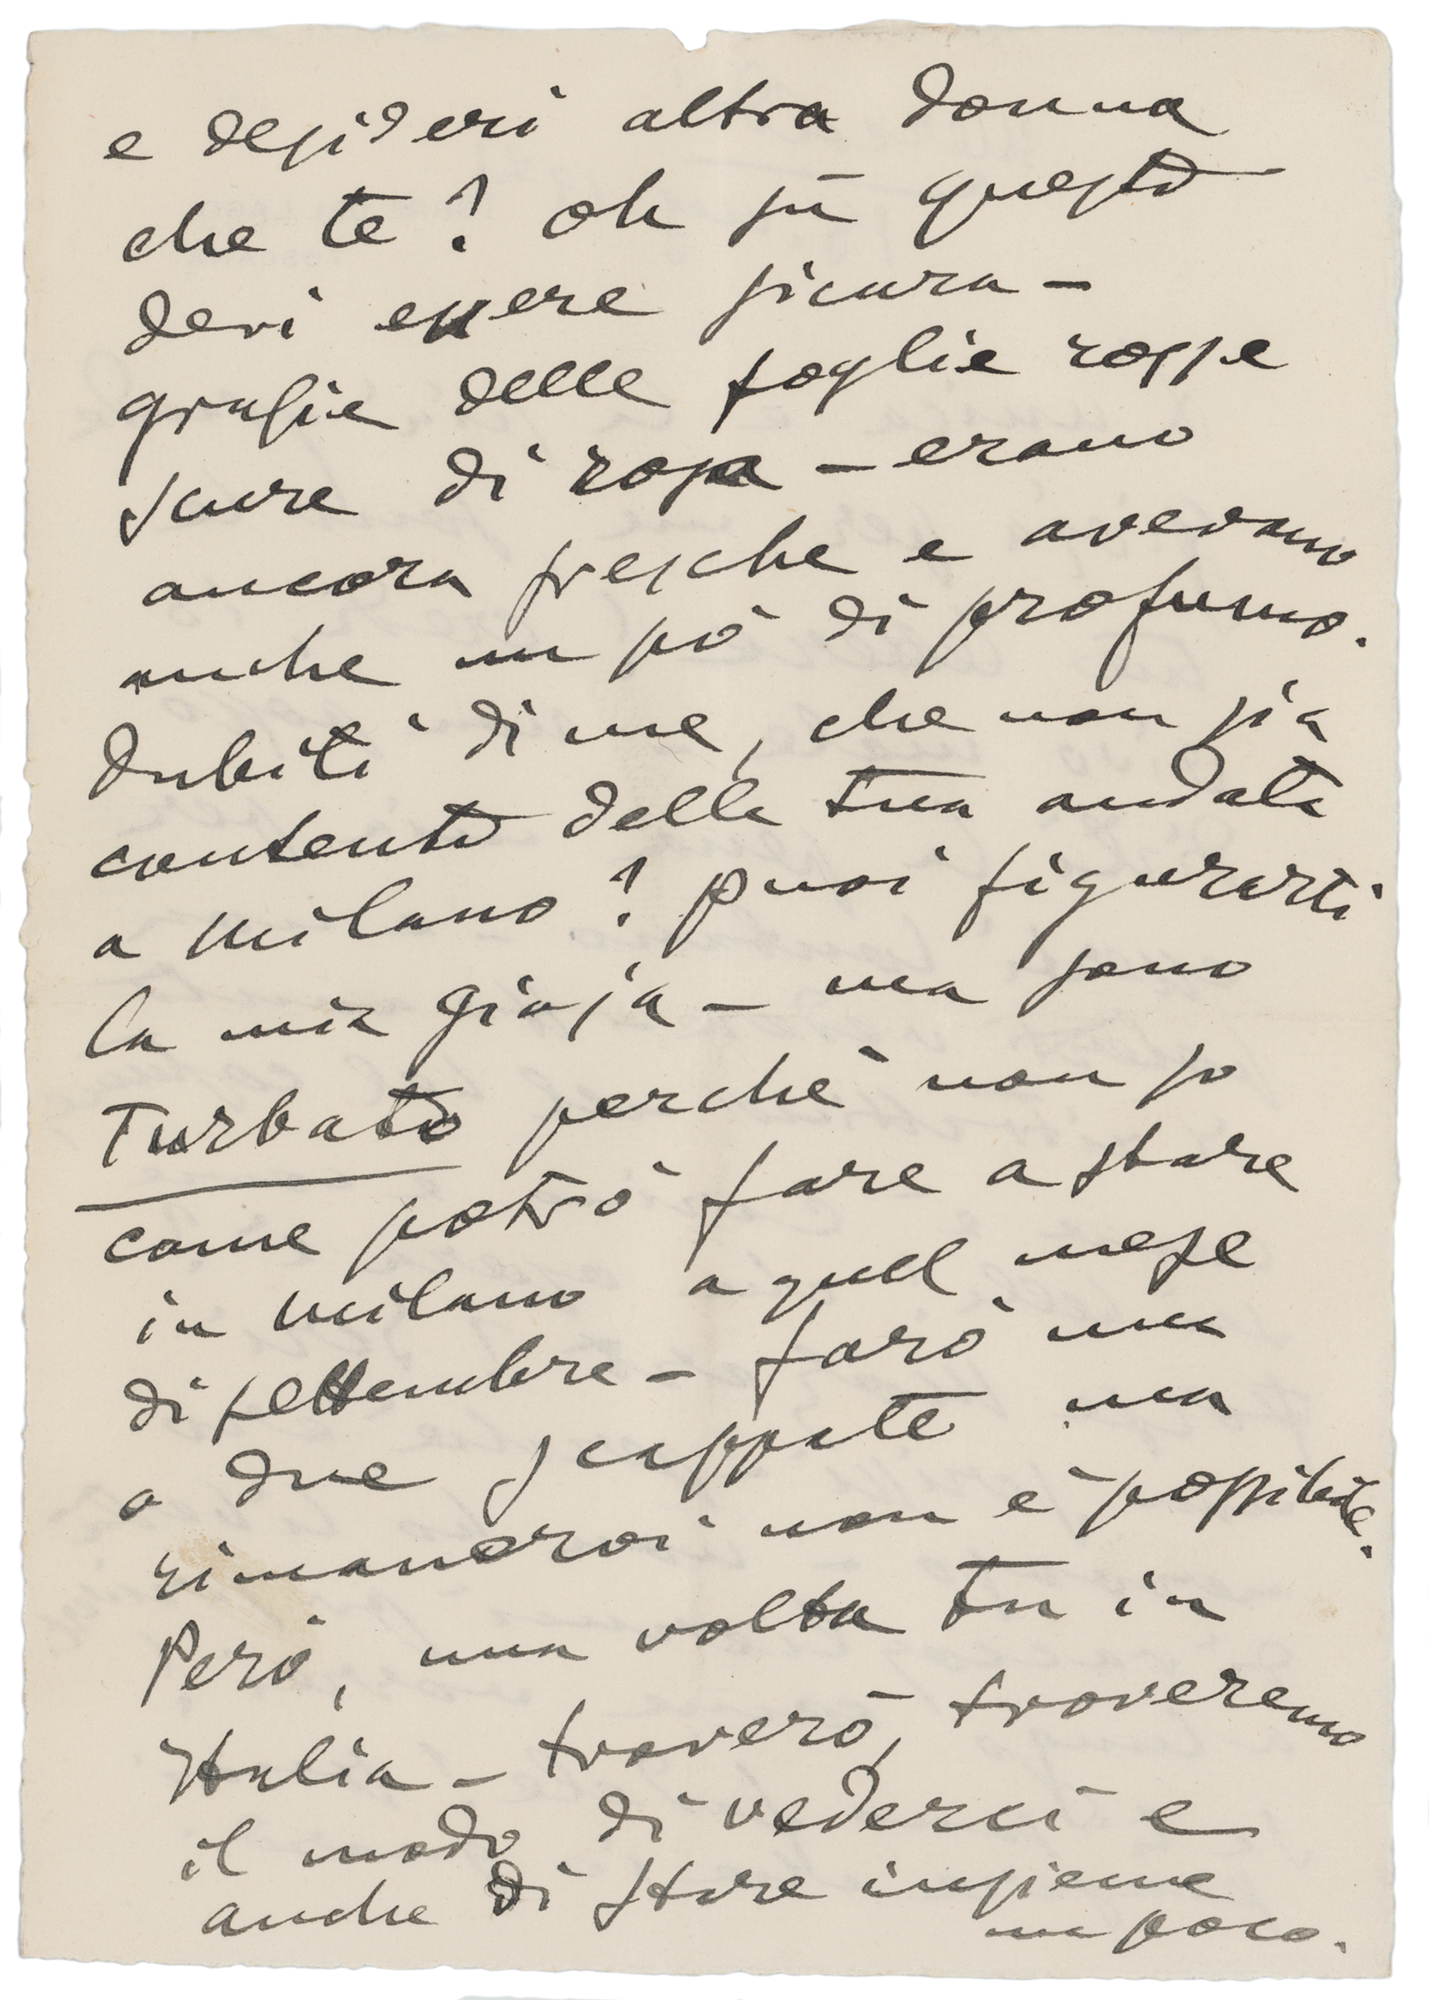 e desideri altra donna
che te? oh sii questo
devi essere sicura –
grasie delle foglie rosse
scure di rosa – erano
ancora fresche e avevano
anche un pò di profumo.
Dubiti di me, che non sia
contento della tua andata
a Milano? Puoi figurarti
la mia gioja – ma sono
turbato perchè non so
come potrò fare a stare
in Milano a quel mese
di settembre – farò una
o due scappate ma
rimanervi non è possibile.
Però, una volta tu in
Italia – troverò, troveremo
il modo di vederci e
anche di stare insieme
un poco.